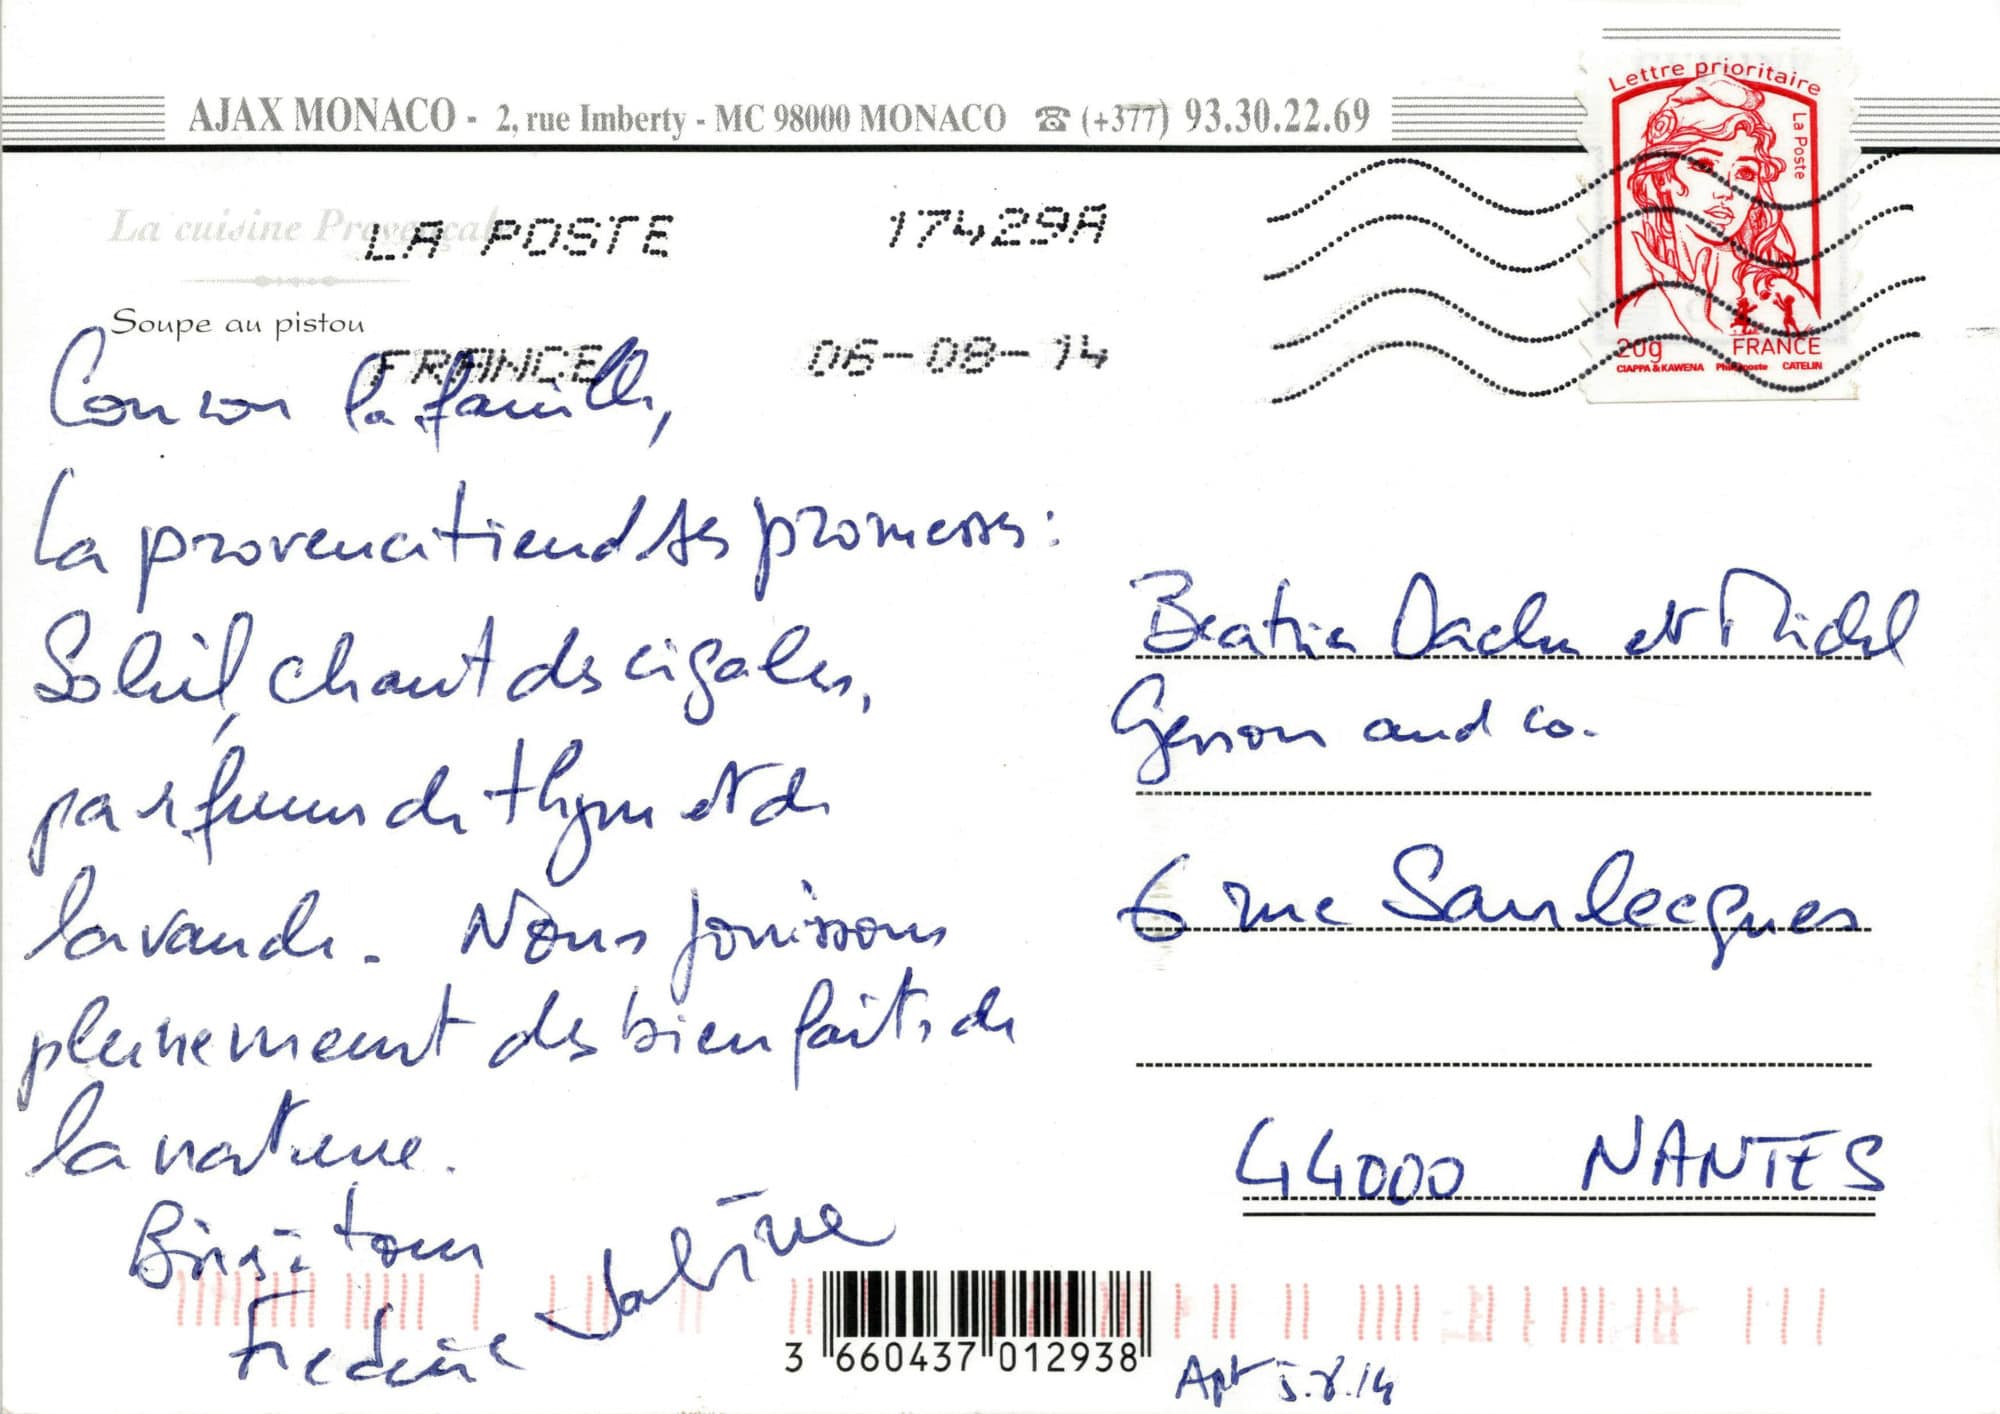 Lettre prioritaire
La Poste
AJAX MONACO - 2, rue Imberty - MC 98000 MONACO ☎ (+377) 93.30.22.69
20g FRANCE
CIAPPA & KAWENA Phil@poste CATELIN
La cuisine Provençale
LA POSTE 17429A
Soupe au pistou
FRANCE 06-08-14
Coucou la famille,
La provence tiend ses promesses :
Soleil, chant des cigales,
parfum de thym et de
lavande. Nous jouissons
pleinement des bienfaits de
la nature.
Bises à tous
Sabine
Béatrice et Michel
Gerson and co.
6 rue Sanlecques
44000 NANTES
3 660437 012938
Apt 5.8.14